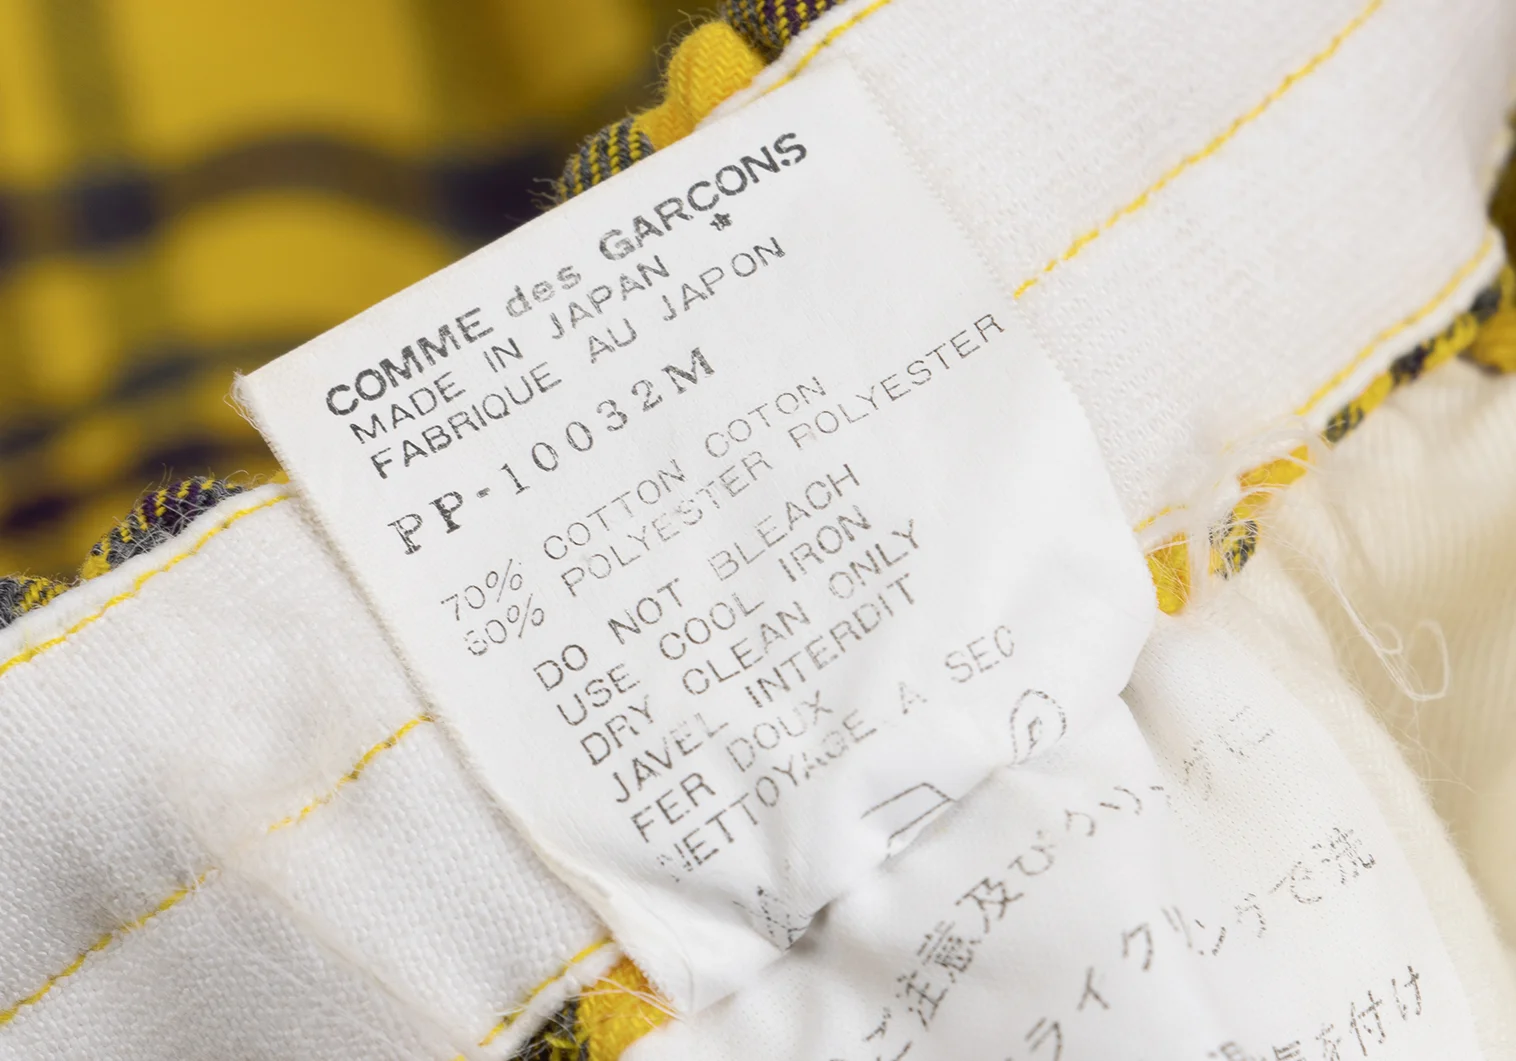 COMME des GARCONS
*
MADE IN JAPAN
FABRIQUE AU JAPON
PP-10032M
70% COTTON COTON
POLYESTER POLYESTER
DO NOT BLEACH
USE COOL IRON
DRY CLEAN ONLY
JAVEL INTERDIT
FER DOUX
NETTOYAGE A SEC
ご注意及び
ライクリングで洗
を付け